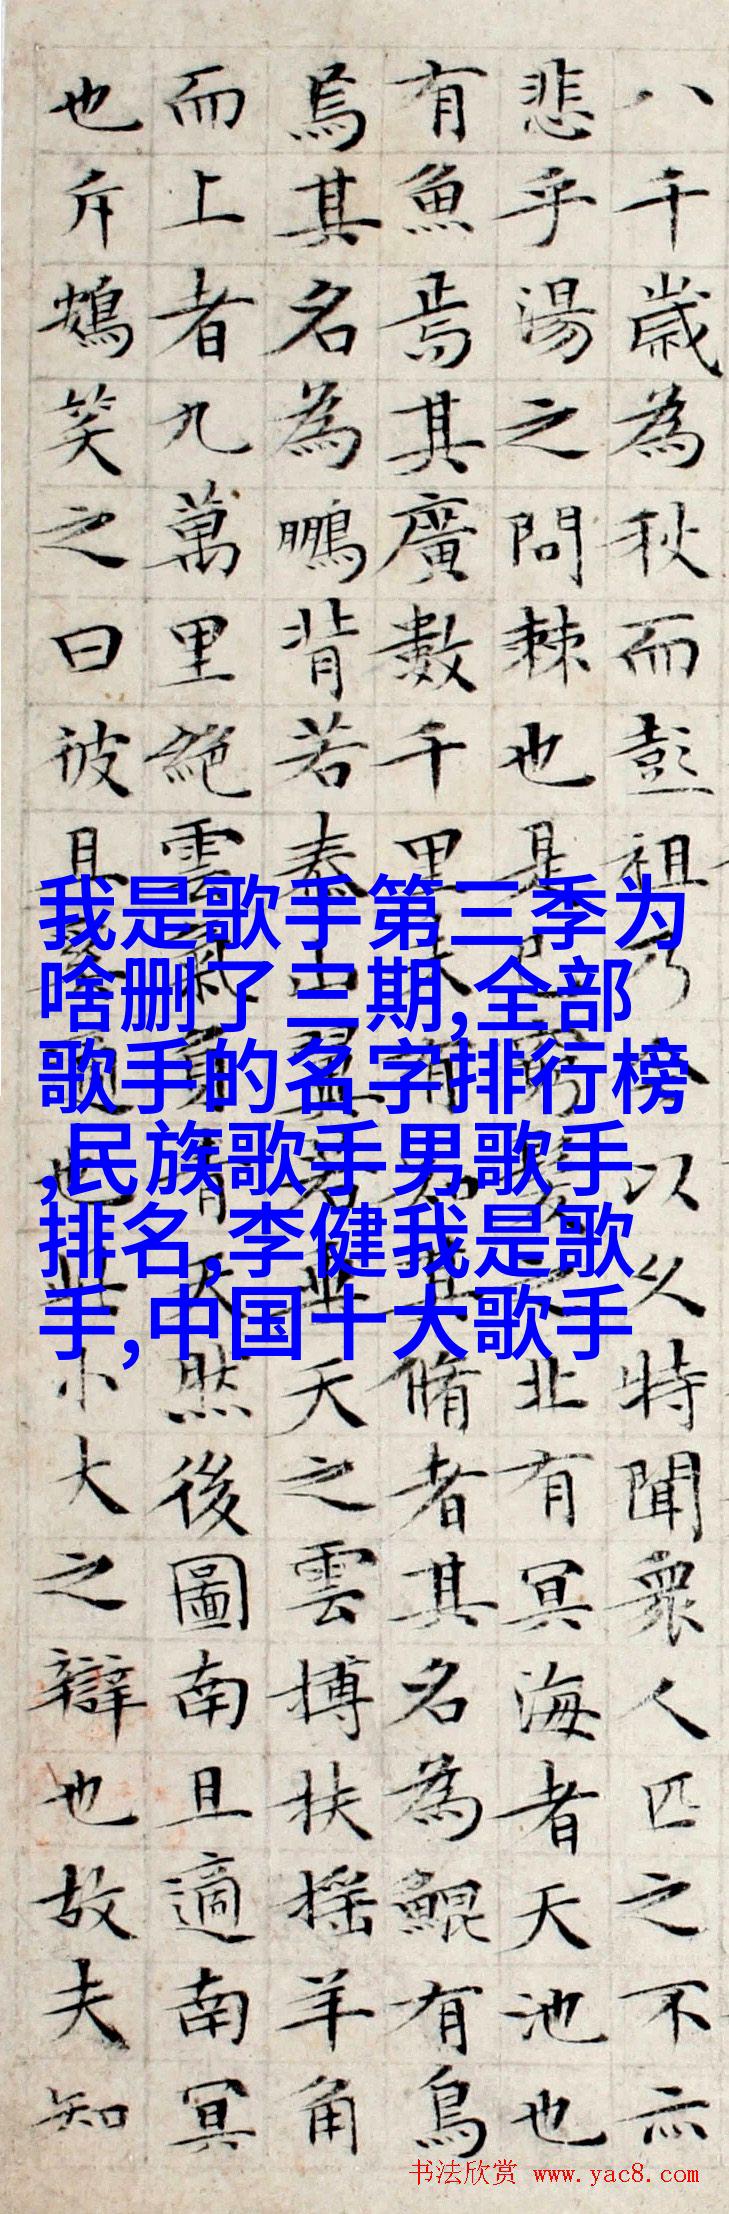 八千歲為秋而彭祖乃今以久特聞衆人匹之不亦
悲乎湯之問棘也是已窮髮之北有冥海者天池也
有魚焉其廣數千里未有知其脩者其名為鯤有鳥
焉其名為鵬背若泰山翼若垂天之雲搏扶搖羊角
而上者九萬里絕雲氣負青天然後圖南且適南冥
也斥鴳笑之曰彼且奚適也此小大之辯也故夫知
我是歌手第三季为
啥删了三期,全部
歌手的名字排行榜
,民族歌手男歌手
排名,李健我是歌
手,中国十大歌手
书法欣赏 www.yac8.com